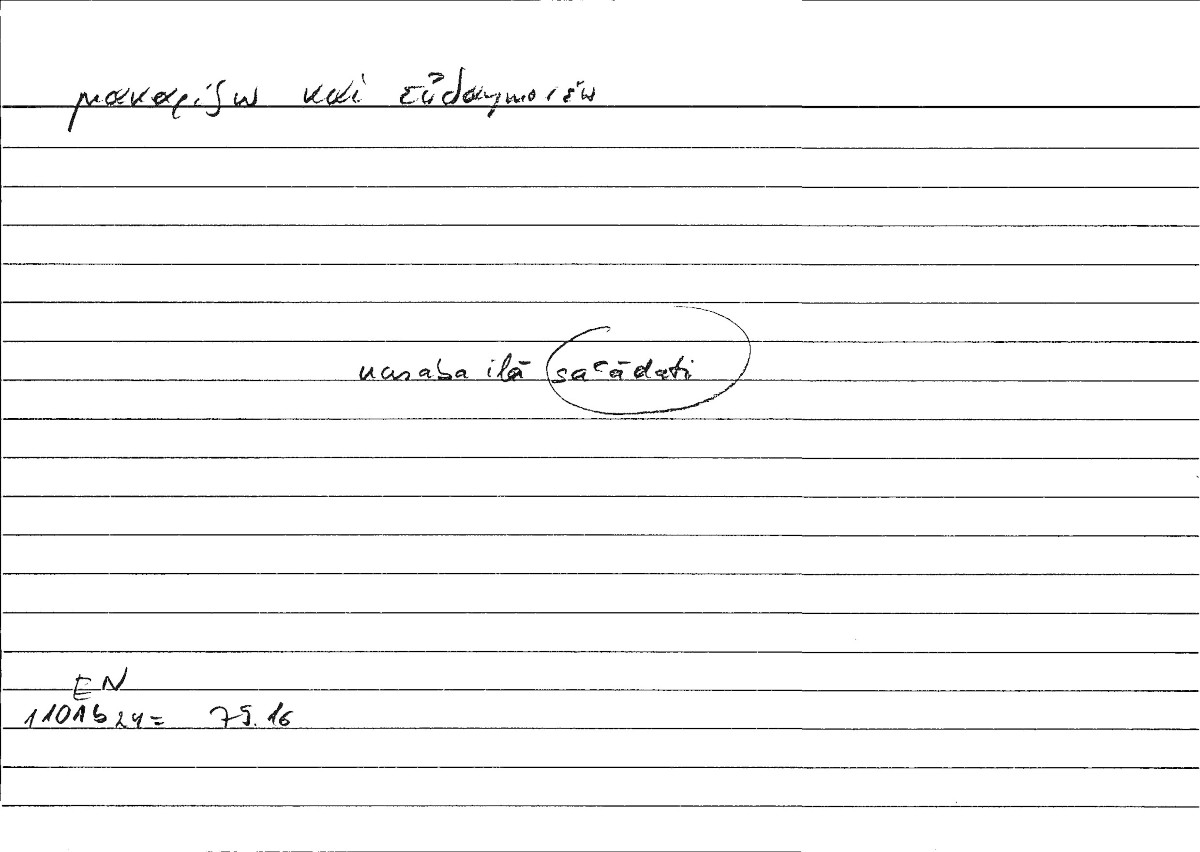 μακαρίζω καὶ εὐδαιμονέω
nasaba ilā saʿādati
EN
1101b24= 75.16